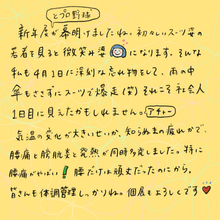 とプロ野球
新年度が幕明けましたね。初々しいスーツ姿の
若者を見ると微笑み婆になります。そんな
私も4月1日に深刻な忘れ物をして、雨の中
傘もささずにスーツで爆走(笑)それこそ社会人
1日目に見えたかもしれません。アチャー
気温の変化が大きいせいか、知らぬまの疲れかで、
腰痛と膀胱炎と発熱が同時多発しました。特に
腰痛がやばい!腰だけは頑丈だったのにから。
皆さんも体調管理しっかりね。個展もよろしくです